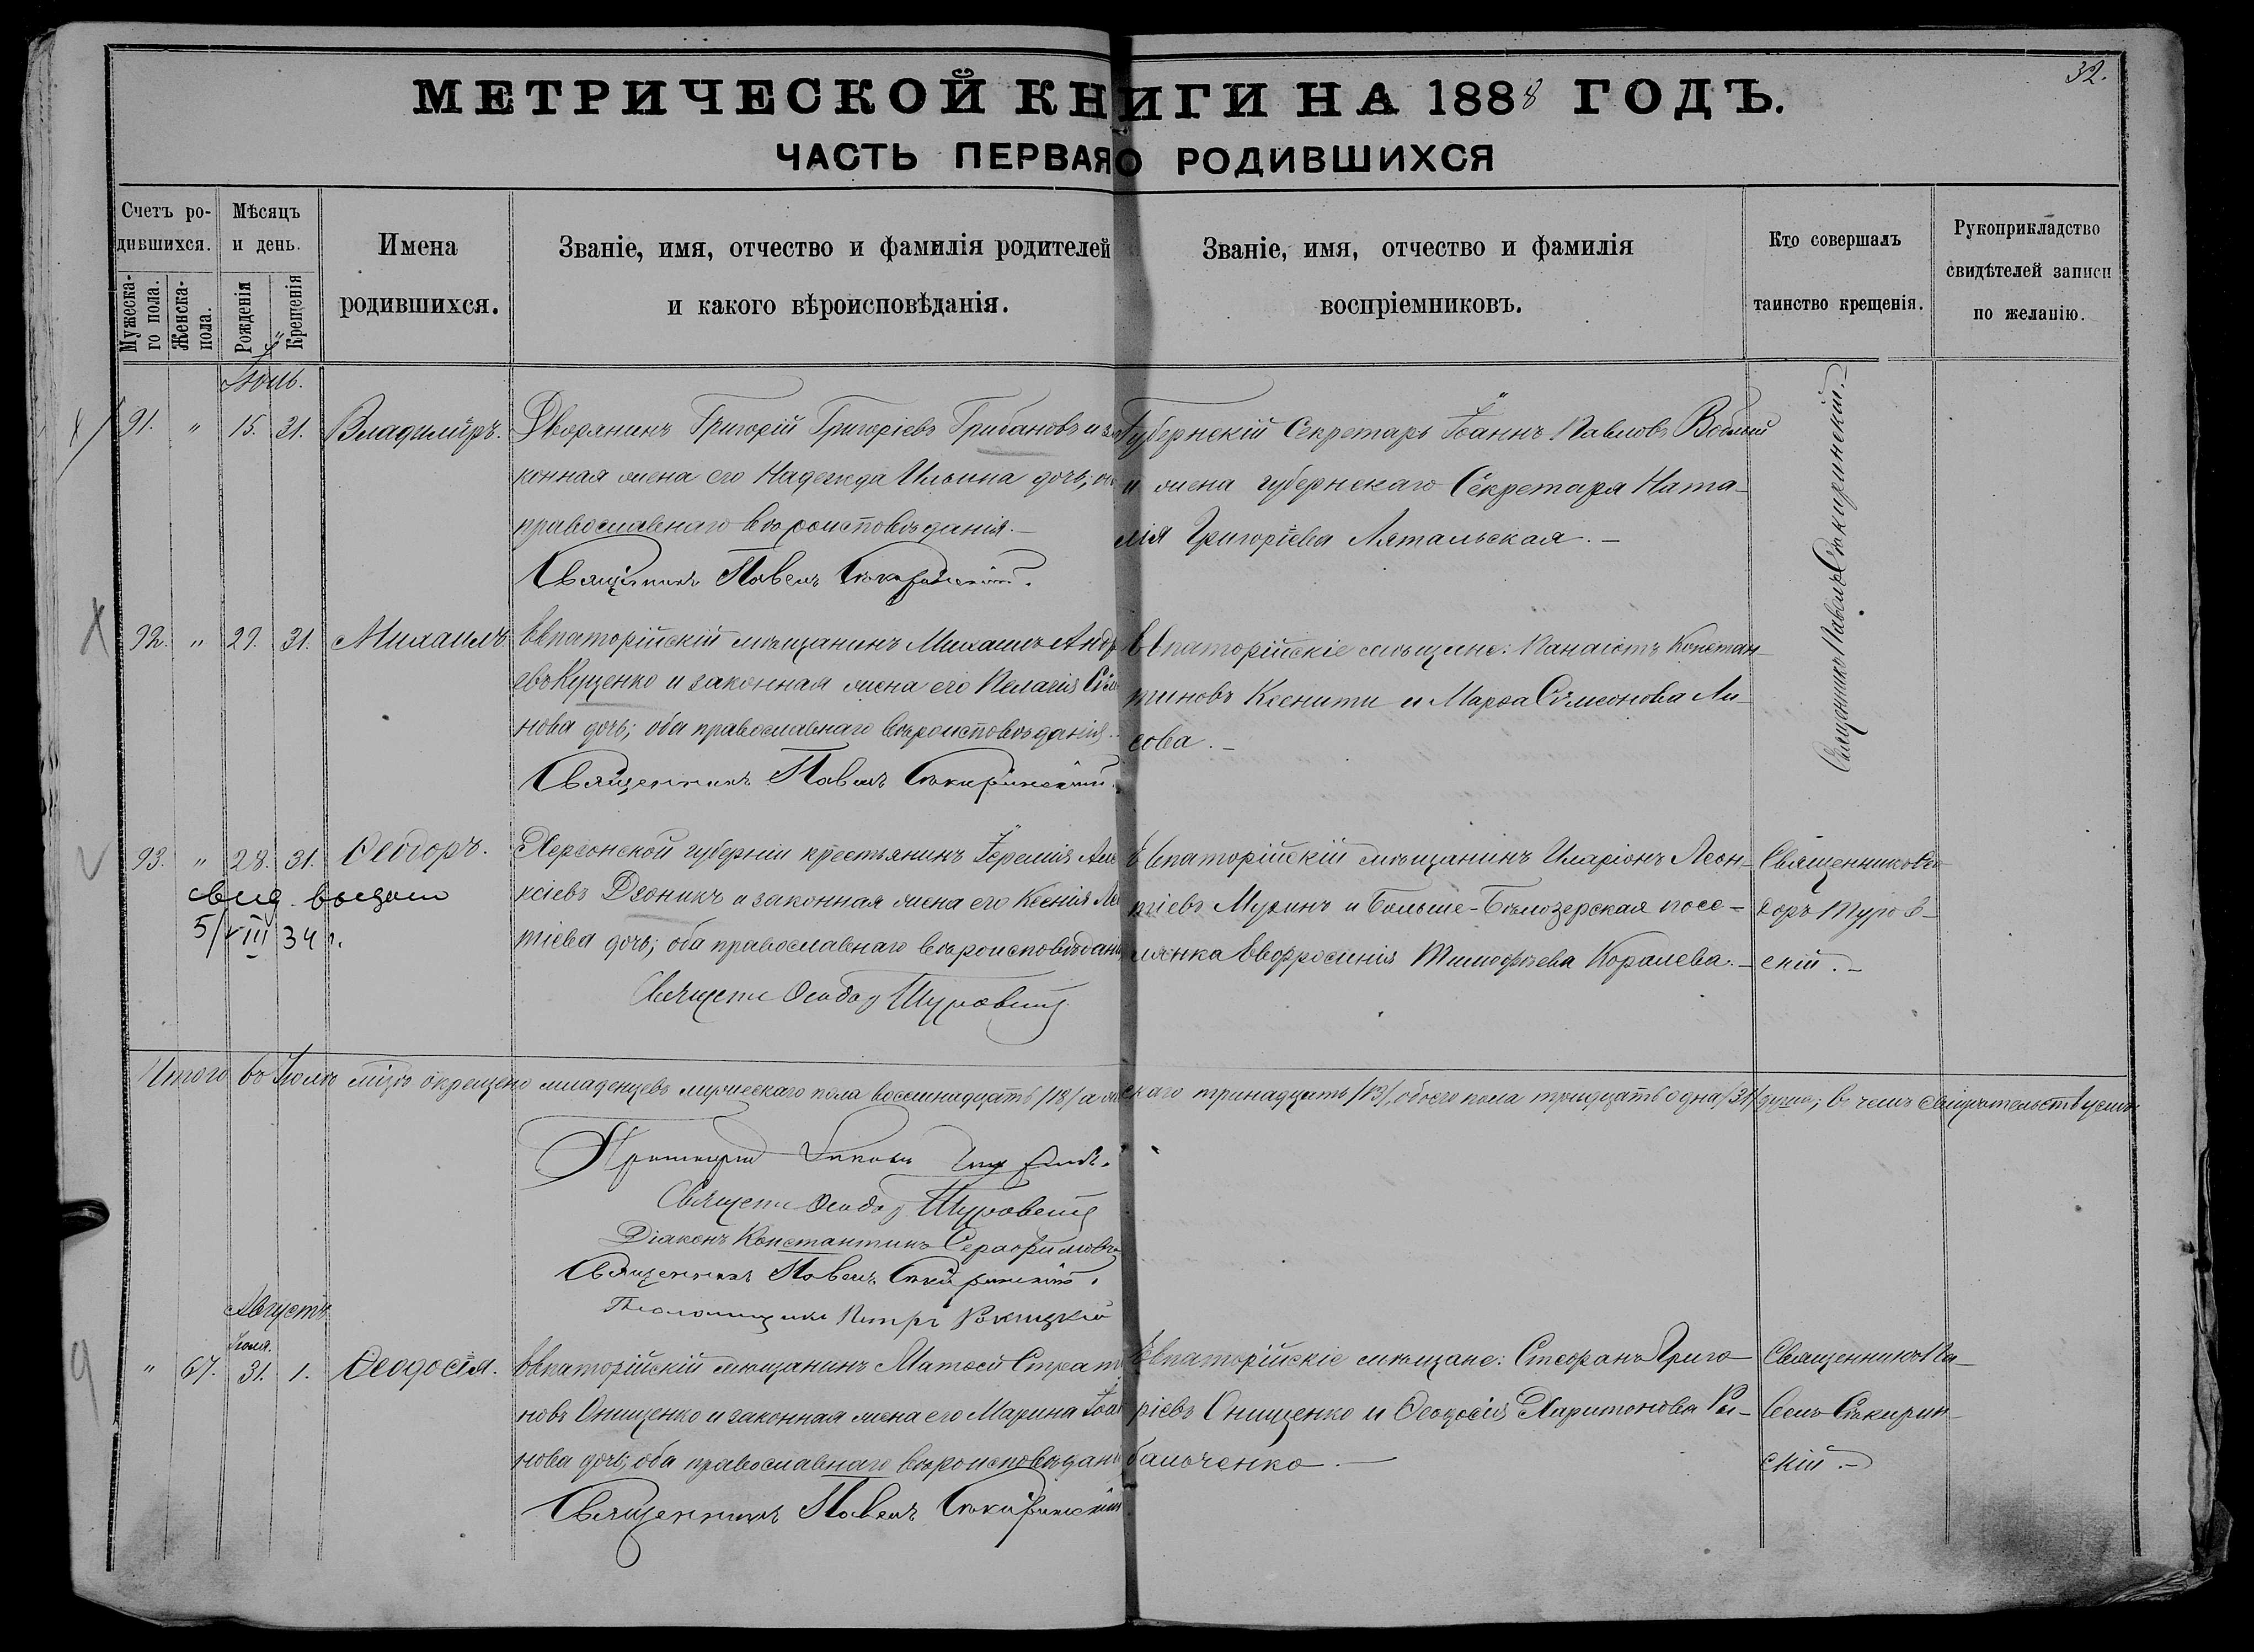 32.
МЕТРИЧЕСКОЙ КНИГИ НА 1888 ГОДЪ.
ЧАСТЬ ПЕРВАЯ О РОДИВШИХСЯ
Счетъ ро-
дившихся.
Мужеска-
го пола.
Женска-
пола.
Мѣсяцъ
и день.
Рожденія
Крещенія
Имена
родившихся.
Званіе, имя, отчество и фамилія родителей
и какого вѣроисповѣданія.
Званіе, имя, отчество и фамилія
воспріемниковъ.
Кто совершалъ
таинство крещенія.
Рукоприкладство
свидѣтелей записи
по желанію.
Іюль.
91. " 15. 31. Владиміръ.
Дворянинъ Григорій Григоріевъ Грибановъ и за
конная жена его Надежда Ильина дочь;
православнаго вѣроисповѣданія.—
Священникъ Павелъ Сѣкиринскій.
Губернскій Секретарь Іоаннъ Павловъ
и жена губернскаго Секретаря Ната-
лія Григоріева Лятальская.—
Священникъ Павелъ Сѣкиринскій.—
92. " 29. 31. Михаилъ.
Евпаторійскій мѣщанинъ Михаилъ Андр
евъ Куценко и законная жена его Пелагія
нова дочь; оба православнаго вѣроисповѣданія.—
Священникъ Павелъ Сѣкиринскій.
Евпаторійскіе мѣщане: Панаіотъ Констан-
тиновъ Ксенити и Марѳа Сѵмеонова Ли-
сова.—
93. " 28. 31. Ѳеодоръ.
свид. выдано
5/VIII 34 г.
Херсонской губерніи крестьянинъ Іеремія Але
ксіевъ Дзоникъ и законная жена его Ксенія Ле
тіева дочь; оба православнаго вѣроисповѣданія
Священ Ѳеодор Туровскій
Евпаторійскій мѣщанинъ Иларіонъ Леон-
тіевъ Музинъ и Больше-Бѣлозерская посе-
лянка Евфросинія Тимофѣева Коралева.—
Священникъ Ѳео-
доръ Туров-
скій.—
Итого въ Іюлѣ мѣсѣ окрещено младенцевъ мужескаго пола восемнадцать /18/ а жен
скаго тринадцать /13/, обоего пола тридцать одна /31/ душа; въ чемъ свидѣтельствуемъ:
Протоіерей Іаковъ
Священ Ѳеодор Туровскій
Діаконъ Константинъ Серафимовъ
Священникъ Павелъ Сѣкиринскій.
Псаломщикъ Петръ Рокицкій
Августъ
Іюля.
" 67. 31. 1. Ѳеодосія.
Евпаторійскій мѣщанинъ Матѳей Страт
новъ Онищенко и законная жена его Марина Іоан
нова дочь; оба православнаго вѣроисповѣдані
Священникъ Павелъ Сѣкиринскій
Евпаторійскіе мѣщане: Стефанъ Григо-
ріевъ Онищенко и Ѳеодосія Харитонова Ры-
бальченко.—
Священникъ Па-
велъ Сѣкирин-
скій.—